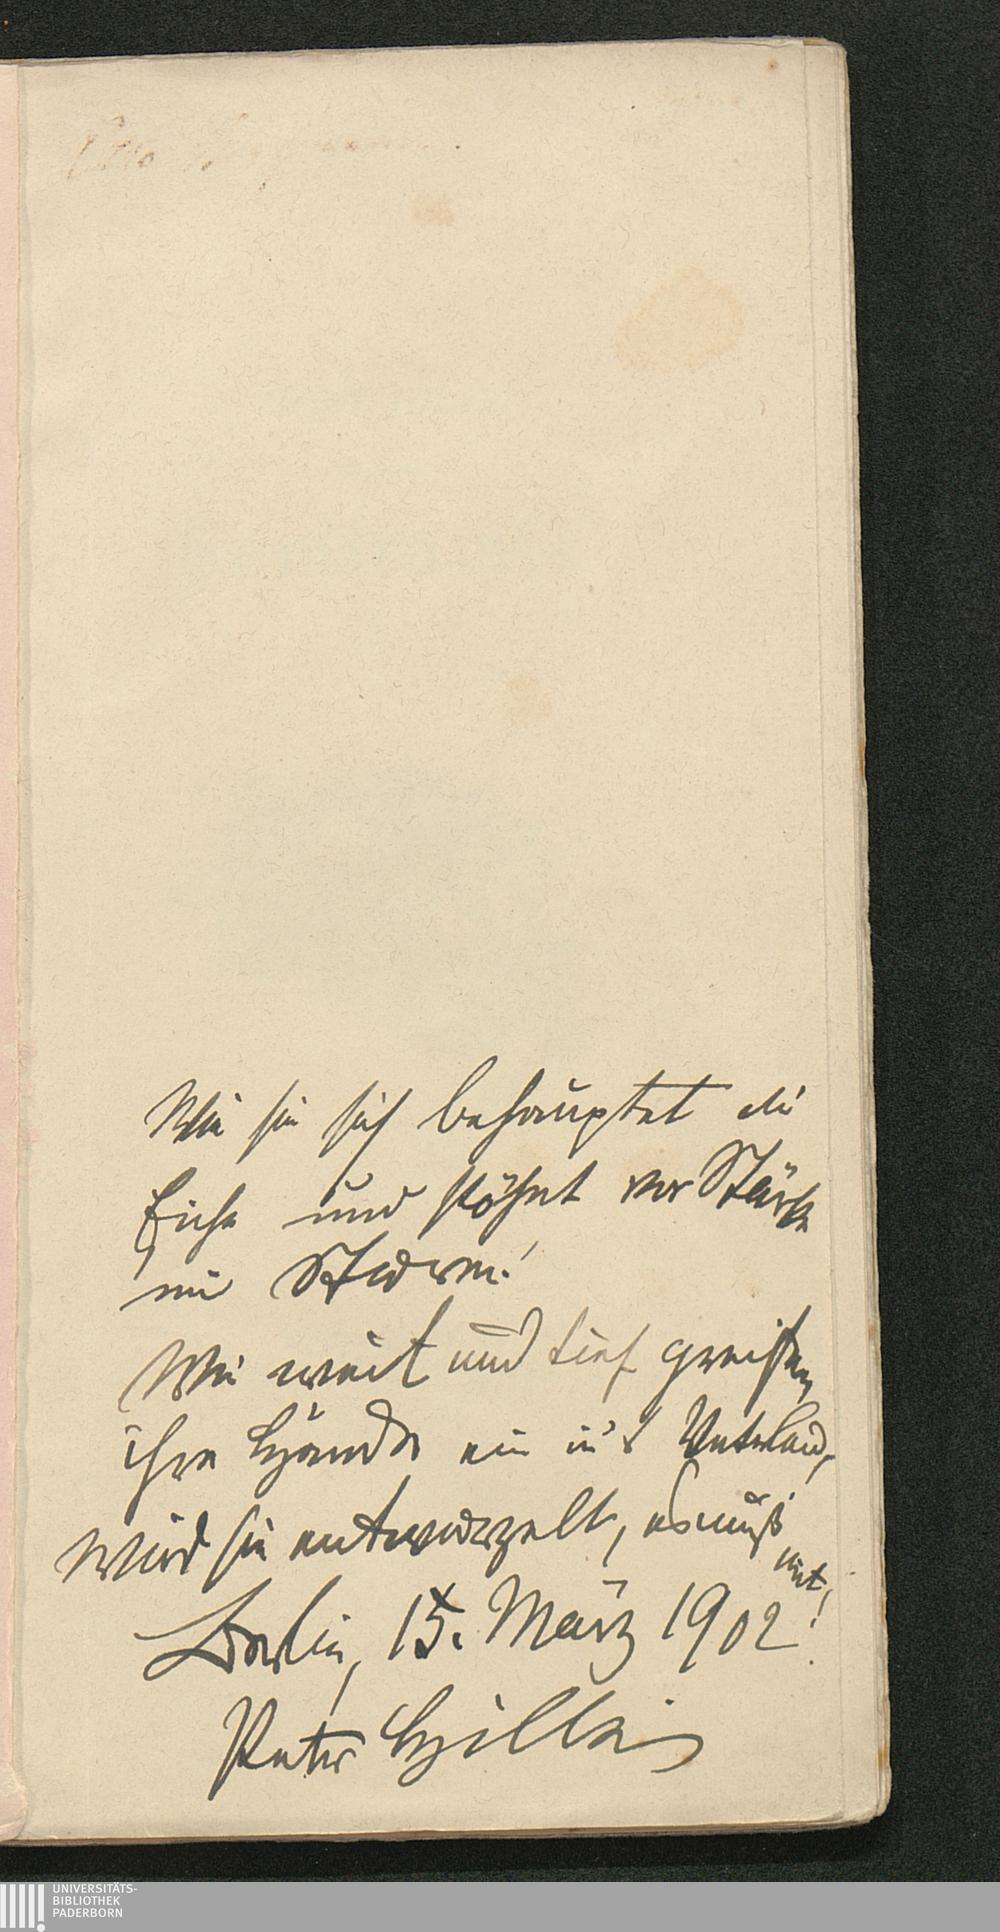 Wie sie sich behauptet die
Eiche und stöhnt vor Stärke
im Sturm!
Wie weit und tief greifen
ihre Hände ein in's Vaterland,
Wird sie entwurzelt, es muß
mit!
Berlin, 15. März 1902.
Peter Hille
UNIVERSITÄTS-
BIBLIOTHEK
PADERBORN